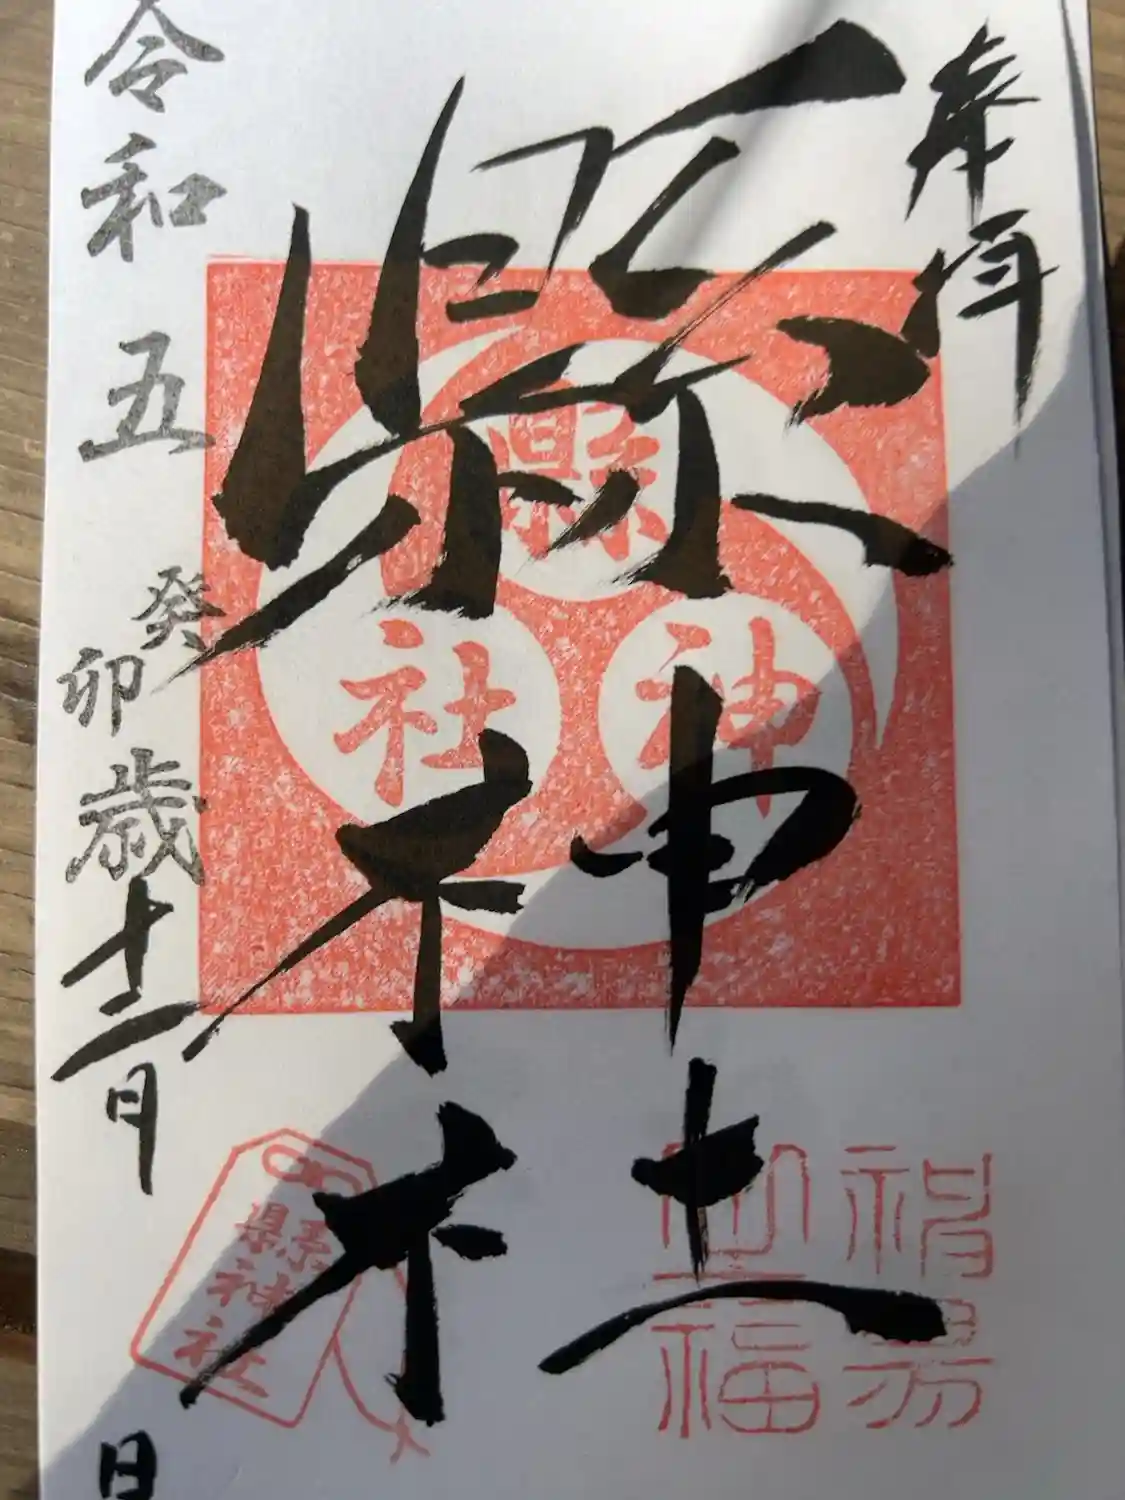 奉拝
縣神社
縣
神社
縣神社
令和五癸卯歳十二月
日